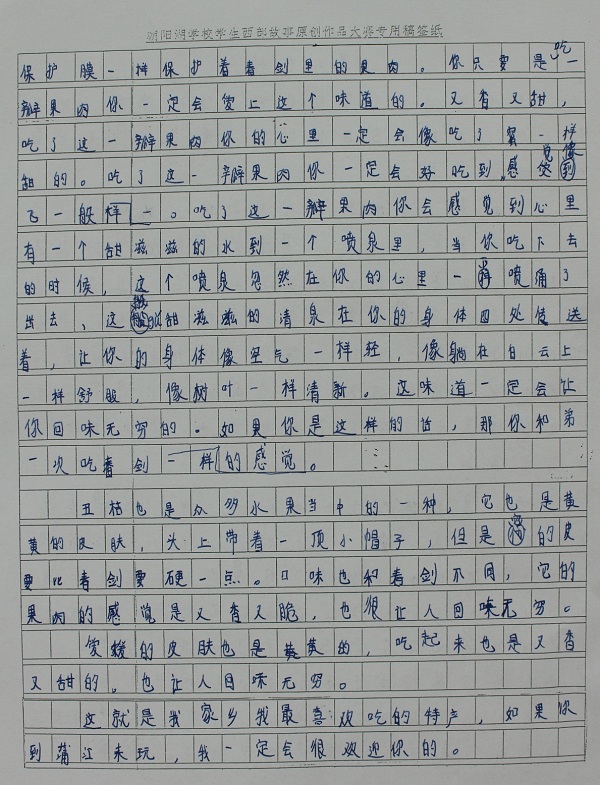 朝阳湖学校学生西部故事原创作品大赛专用稿签纸
保护膜一样保护着春剑里的果肉。你只要是吃一
瓣果肉你一定会爱上这个味道的。又香又甜，
吃了这一瓣果肉你的心里一定会像吃了蜜一样
甜的。吃了这一瓣果肉你一定会好吃到感觉像
飞一般样一。吃了这一瓣果肉你会感觉到心里
有一个甜滋滋的水到一个喷泉里，当你吃下去
的时候，这个喷泉忽然在你的心里一喷涌了
出去、这股甜滋滋的清泉在你的身体四处传送
着，让你的身体像空气一样轻，像躺在白云上
一样舒服，像树叶一样清新。这味道一定会让
你回味无穷的。如果你是这样的话，那你和弟
一次吃春剑一样的感觉。
丑柑也是众多水果当中的一种，它也是黄
黄的皮肤，头上带着一顶小帽子，但是的皮
要比春剑要硬一点。口味也和春剑不同，它的
果肉的感觉是又香又脆，也很让人回味无穷。
爱媛的皮肤也是黄黄的，吃起来也是又香
又甜的。也让人回味无穷。
这就是我家乡我最喜欢吃的特产，如果你
到蒲江来玩，我一定会很欢迎你的。